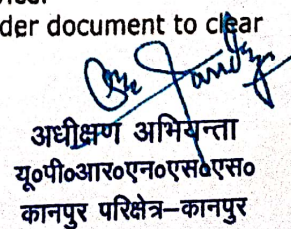 der document to clear
अधीक्षण अभियन्ता
यू०पी०आर०एन०एस०एस०
कानपुर परिक्षेत्र–कानपुर